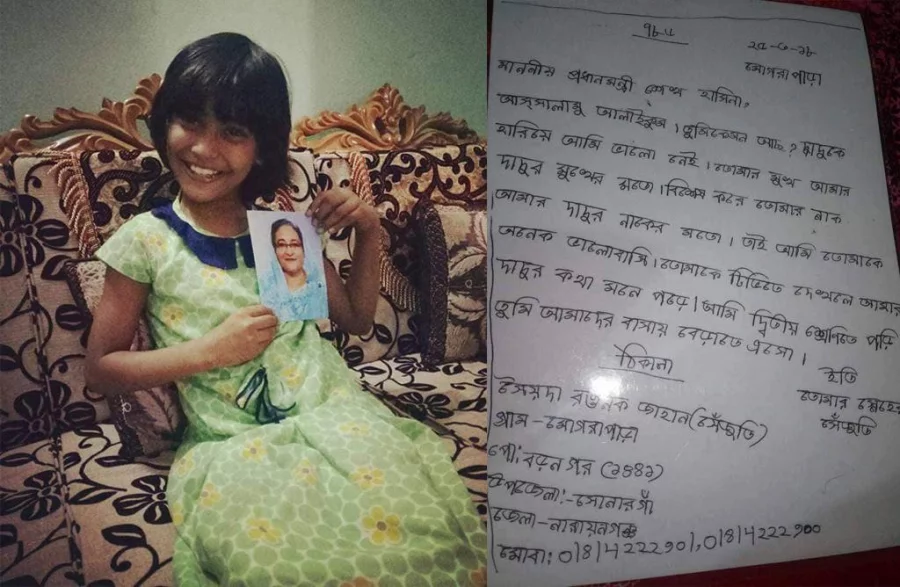 ৭৮৬
২৫-৩-১৮
মোগরাপাড়া
মাননীয় প্রধানমন্ত্রী শেখ হাসিনা,
আসসালামু আলাইকুম। তুমি কেমন আছ? দাদুকে
হারিয়ে আমি ভালো নেই। তোমার মুখ আমার
দাদুর মুখের মতো। বিশেষ করে তোমার নাক
আমার দাদুর নাকের মতো। তাই আমি তোমাকে
অনেক ভালোবাসি। তোমাকে টিভিতে দেখলে আমার
দাদুর কথা মনে পড়ে। আমি দ্বিতীয় শ্রেণিতে পড়ি
তুমি আমাদের বাসায় বেড়াতে এসো।
ইতি
তোমার স্নেহের
সেঁজুতি
ঠিকানা
সৈয়দা রওনক জাহান (সেঁজুতি)
গ্রাম - মোগরাপাড়া
পো: বড়নগর (১৪৪১)
উপজেলা:- সোনারগাঁ
জেলা - নারায়নগঞ্জ
মোবা: 01814222901, 01814222900